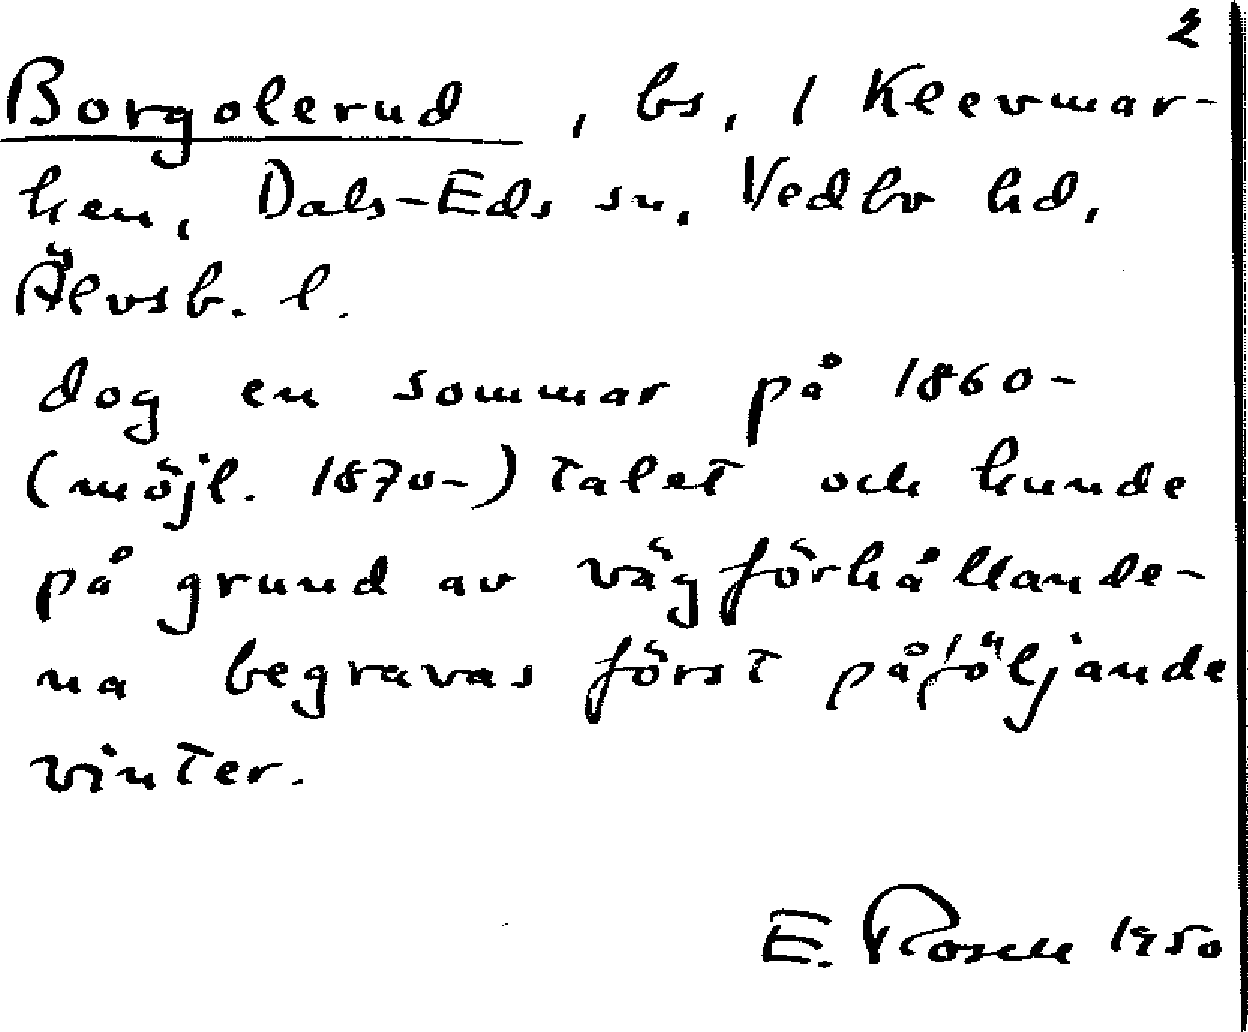 2
Borgolerud, bs, i Klevmar-
ken, Dals-Eds sn, Vedbo hd,
Älvsb. l.
dog en sommar på 1860-
(möjl. 1870-) talet och kunde
på grund av vägförhållande-
na begravas först påföljande
vinter.
E. Rosell 1950